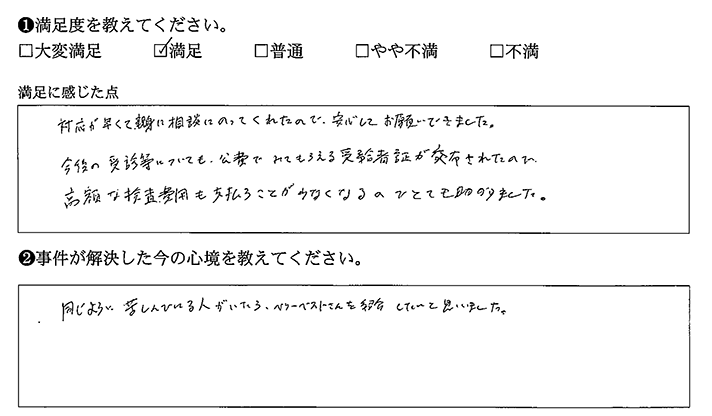 ❶満足度を教えてください。
□大変満足 ☑満足 □普通 □やや不満 □不満
満足に感じた点
対応が早くて親身に相談にのってくれたので、安心してお願いできました。
今後の受診等についても、公費でみてもらえる受給者証が交布されたので、
高額な検査費用も支払うことが少なくなるのでとても助かりました。
❷事件が解決した今の心境を教えてください。
同じように苦しんでいる人がいたら、ベリーベストさんを紹介したいと思いました。